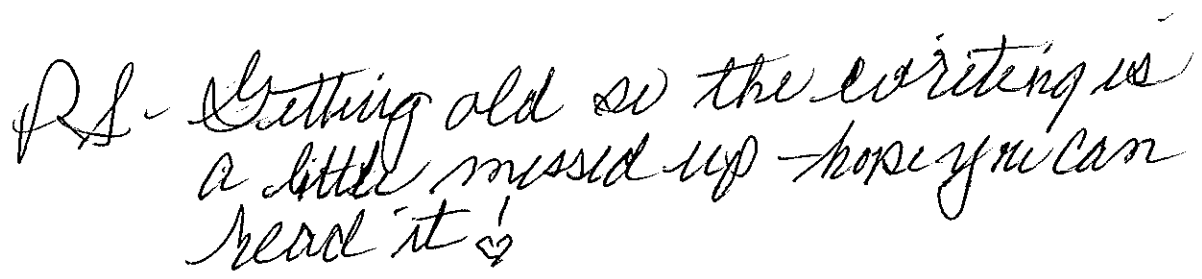 PS- Getting old so the writing is
a little messed up - hope you can
read it!